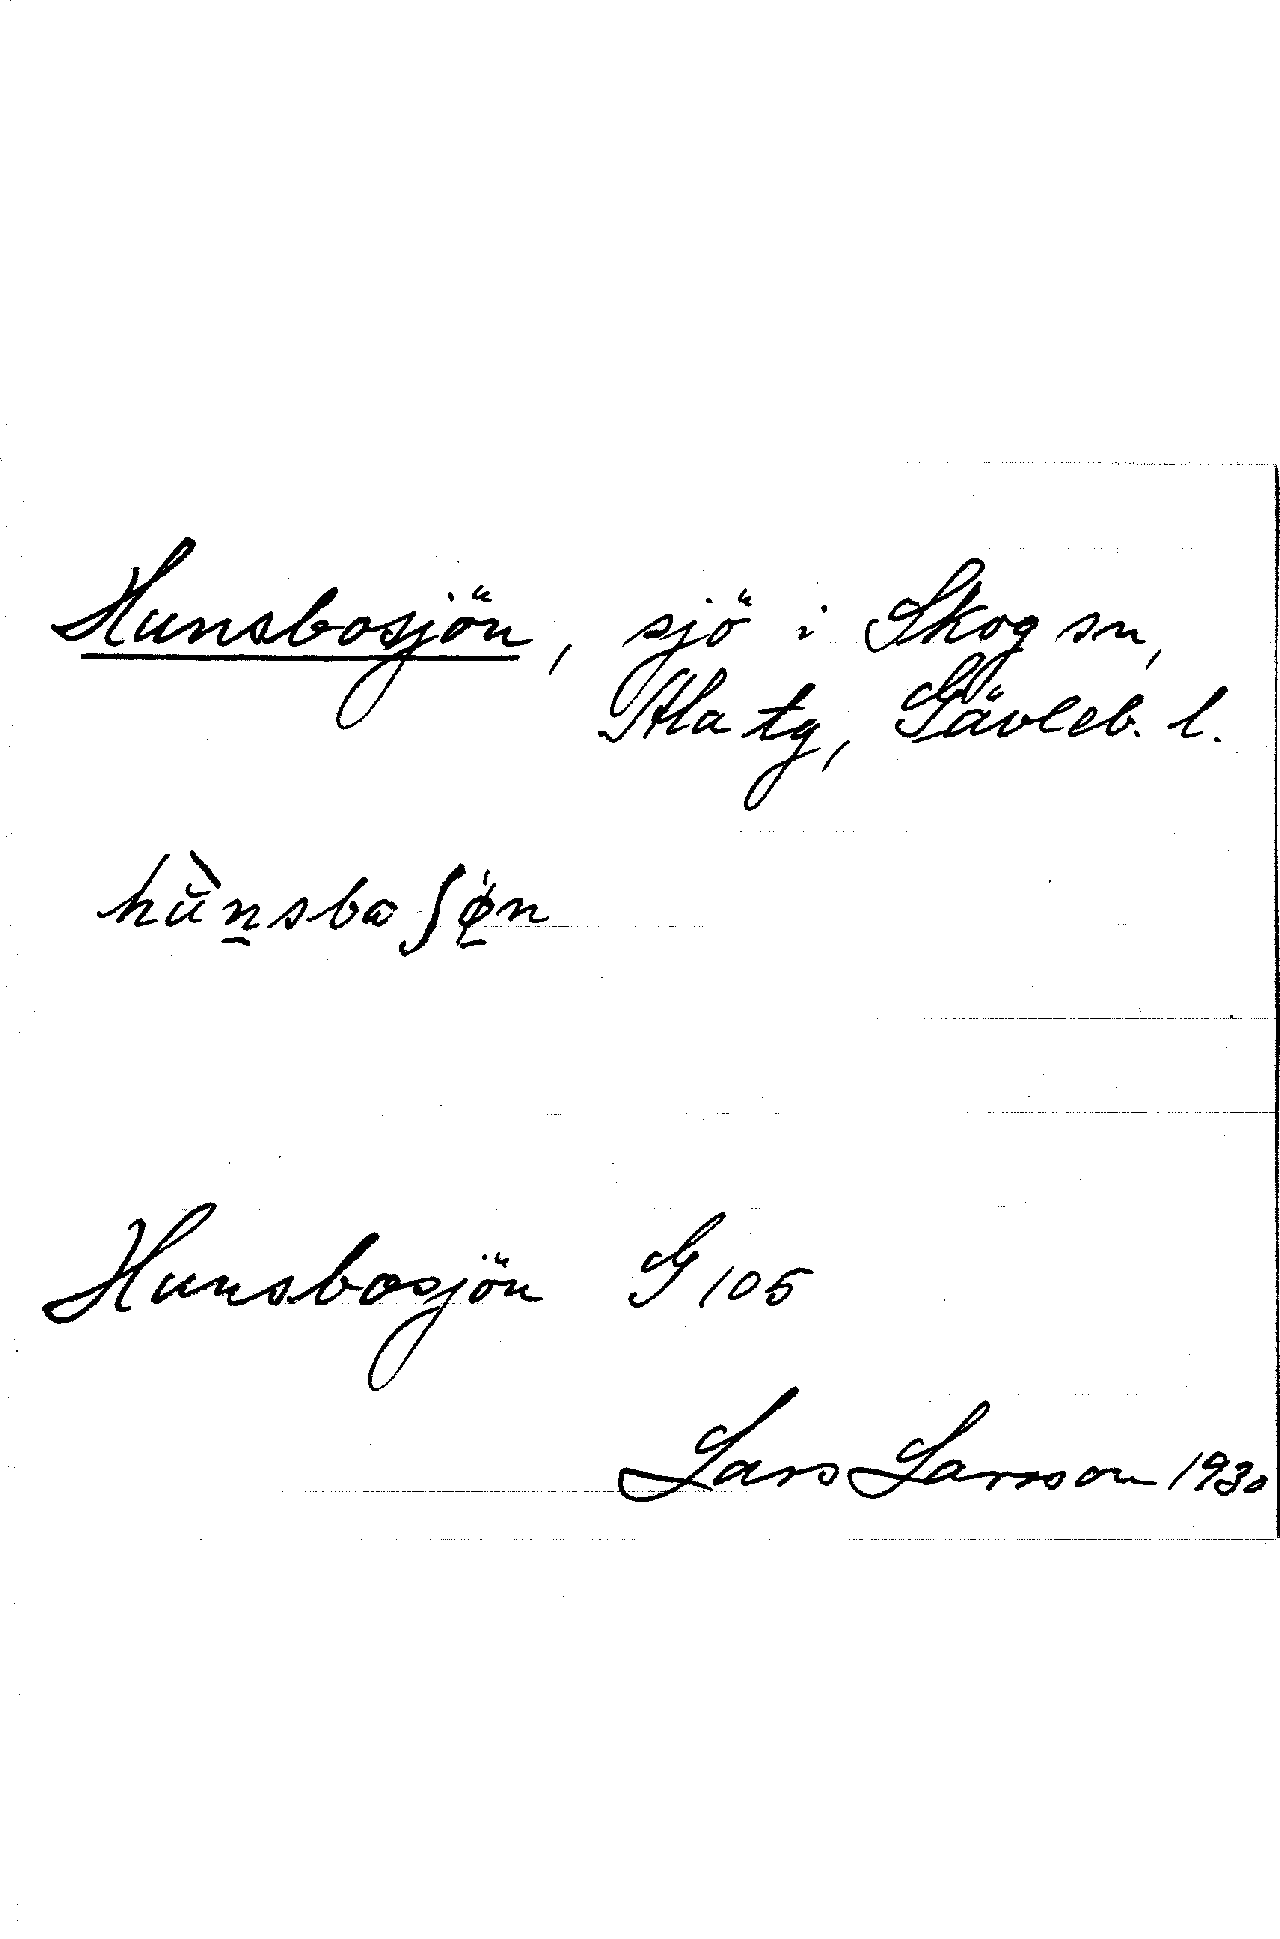 Hunsbosjön, sjö i Skog sn,
Ala tg, Gävleb. l.
hùn̠sbo ʃǿ̠n
Hunsbosjön G 105
Lars Larsson 1930